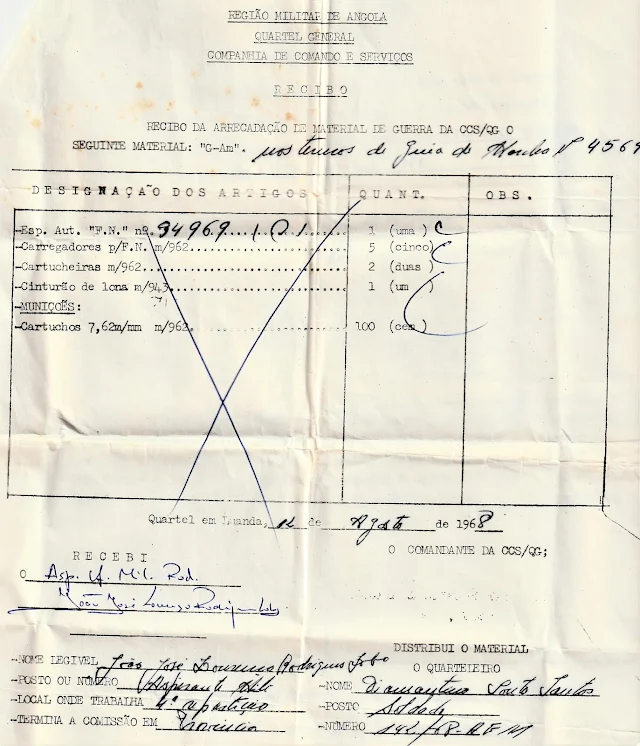 REGIÃO MILITAR DE ANGOLA
QUARTEL GENERAL
COMPANHIA DE COMANDO E SERVIÇOS
R E C I B O
RECIBO DA ARRECADAÇÃO DE MATERIAL DE GUERRA DA CCS/QG O
SEGUINTE MATERIAL: "G-Am". nos termos do Guia de Nº 4569
DESIGNAÇÃO DOS ARTIGOS QUANT. OBS.
-Esp. Aut. "F.N." nº. 94969 1 (uma )
-Carregadores p/F.N. m/962 5 (cinco)
-Cartucheiras m/962 2 (duas )
-Cinturão de lona m/943 1 (um )
-MUNIÇÕES:
-Cartuchos 7,62m/mm m/962 100 (cem )
Quartel em Luanda, 12 de Agosto de 1968
O COMANDANTE DA CCS/QG;
R E C E B I
O Asp. Of. Mil. Rod.
João José Lourenço Rodrigues Lobo
DISTRIBUI O MATERIAL
O QUARTELEIRO
-NOME LEGIVEL João José Lourenço Rodrigues Lobo
-POSTO OU NÚMERO Aspirante
-LOCAL ONDE TRABALHA 4ª repartição
-TERMINA A COMISSÃO EM
-NOME Diamantino Souto Santos
-POSTO Soldado
-NÚMERO